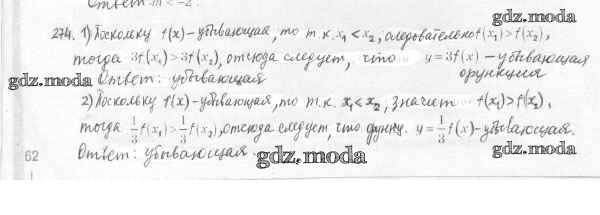 Ответ: m < -2.
274. 1) Поскольку f(x) - убывающая, то т.к. x₁ < x₂, следовательно f(x₁) > f(x₂),
тогда 3f(x₁) > 3f(x₂), отсюда следует, что y = 3f(x) - убывающая
функция
gdz.moda
Ответ: убывающая
gdz.moda
2) Поскольку f(x) - убывающая, то т.к. x₁ < x₂, значит f(x₁) > f(x₂),
тогда 1/3 f(x₁) > 1/3 f(x₂), отсюда следует, что функц. y = 1/3 f(x) - убывающая.
gdz.moda
62 Ответ: убывающая.
gdz.moda